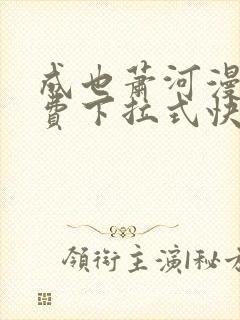 成也萧河漫
费下拉式快
领衔主演|秘方